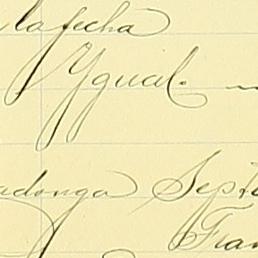 la fecha
Ygual.
adonga Sept
Fran